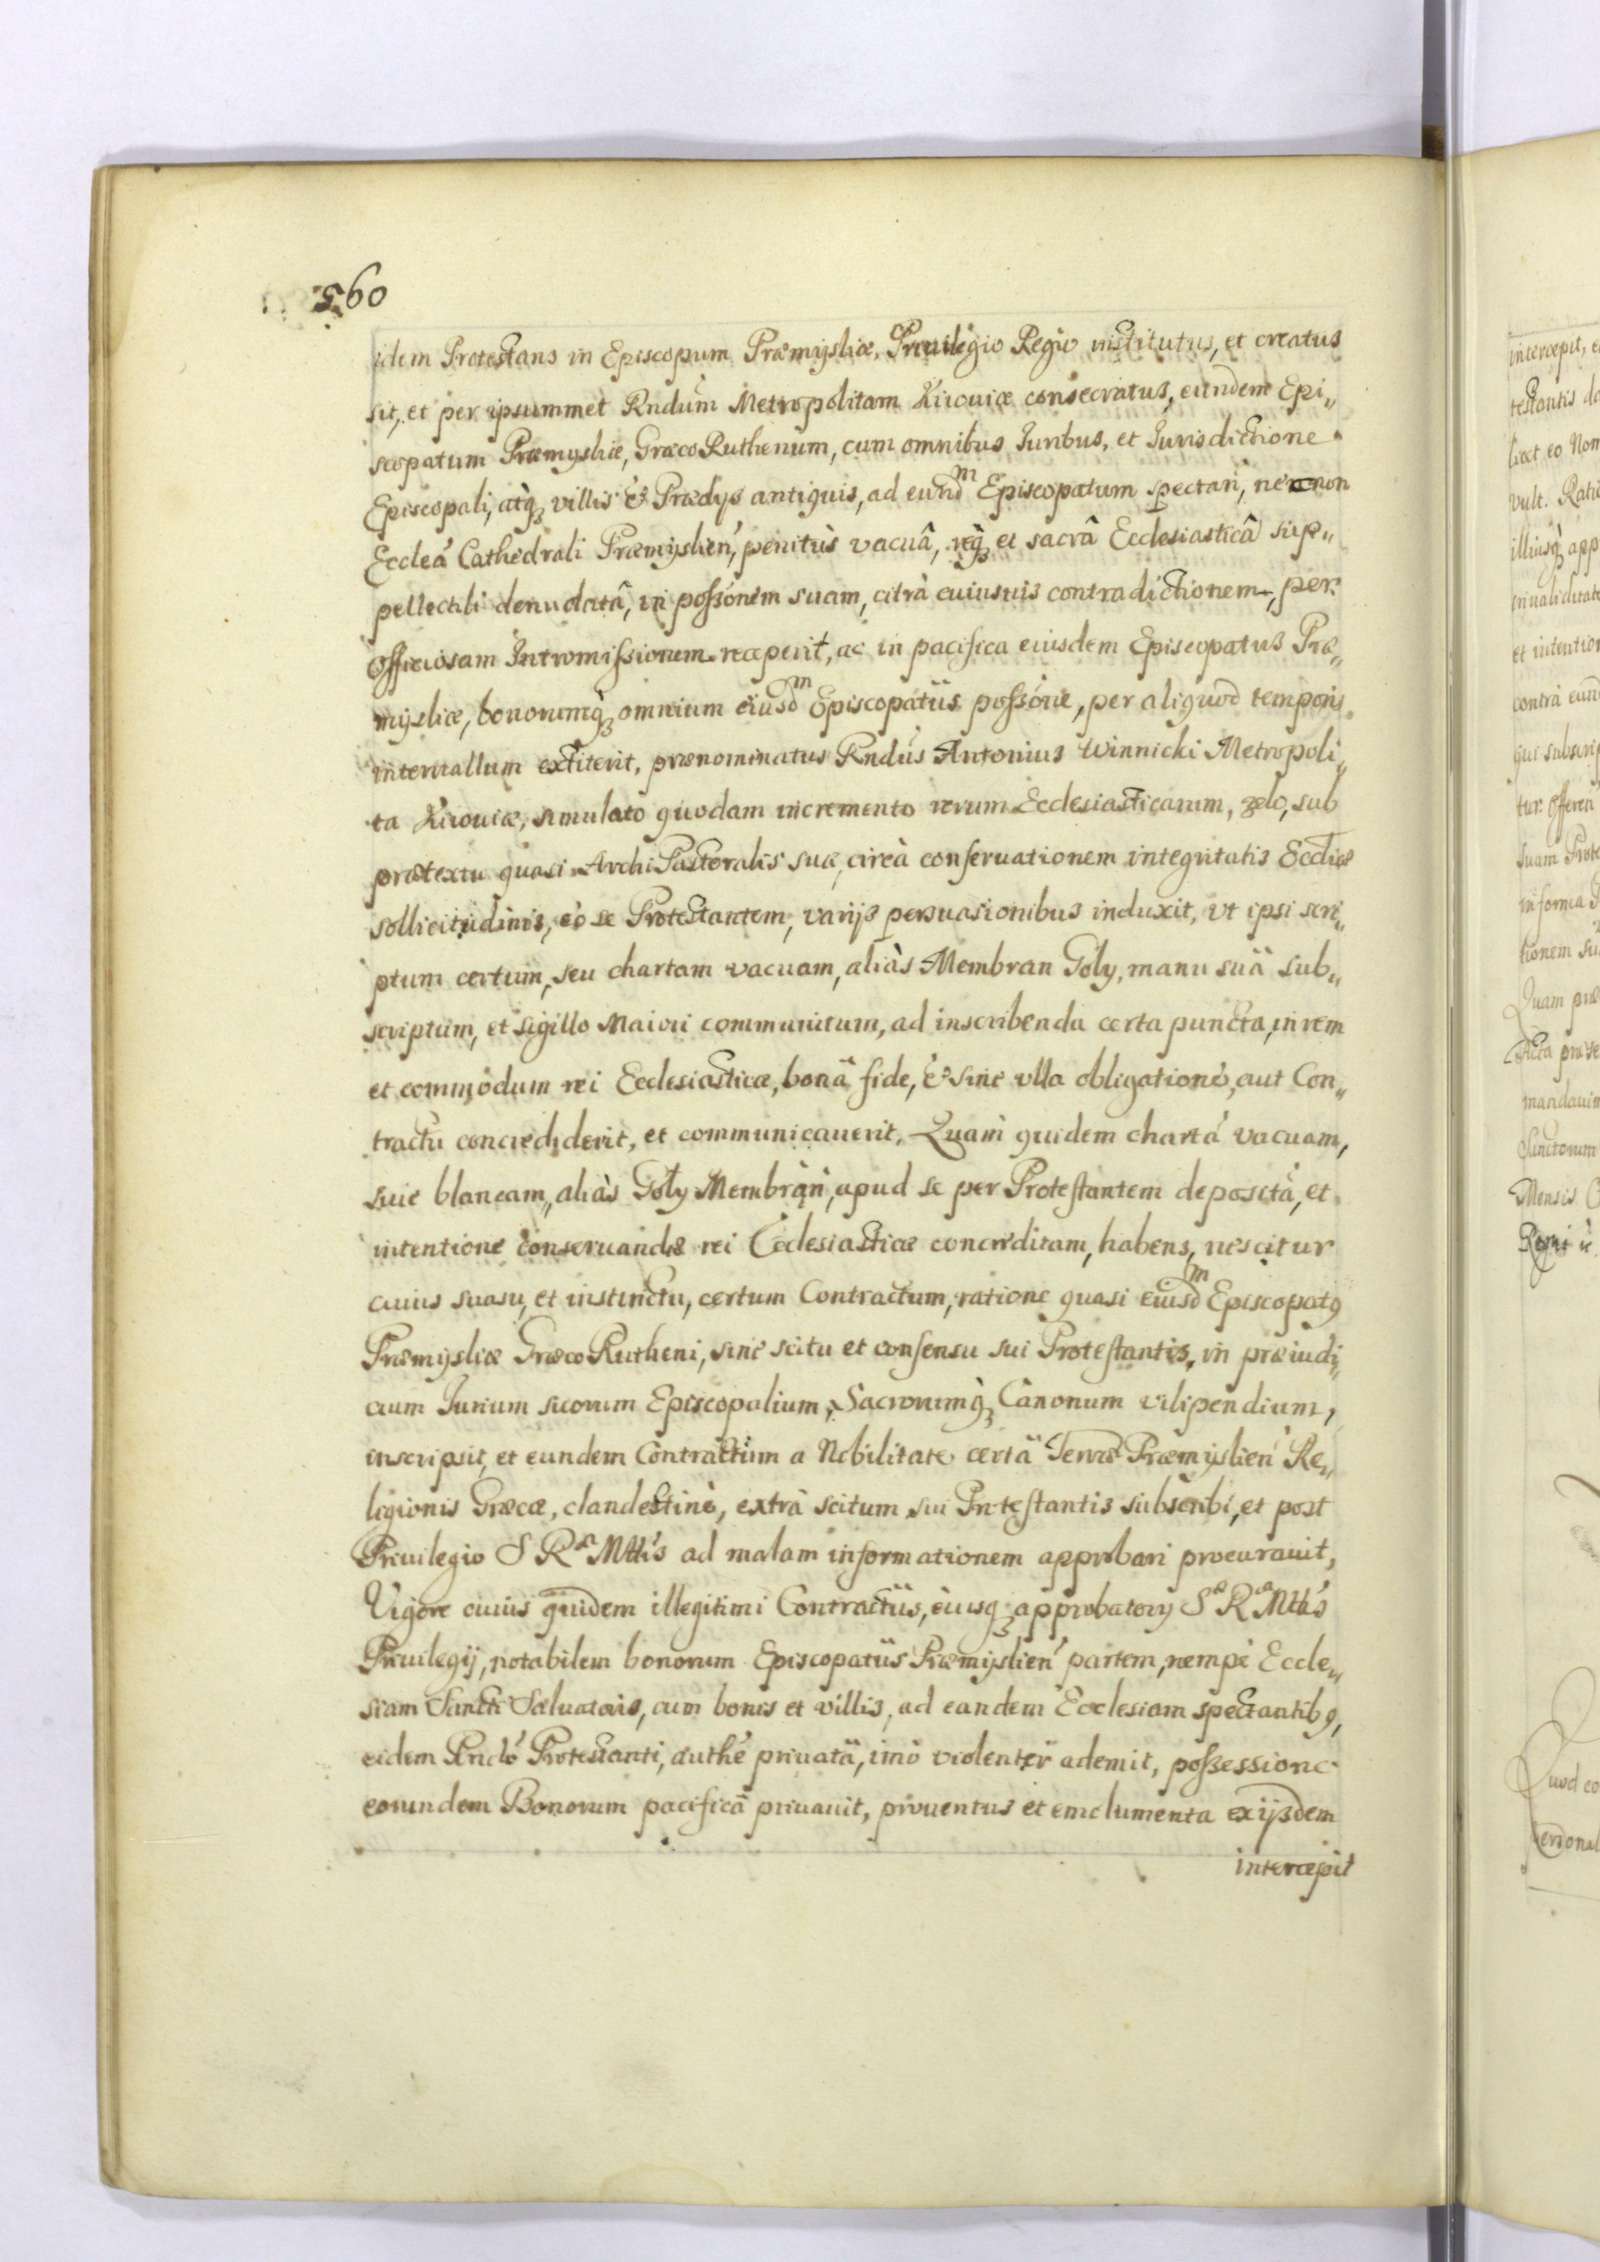 560
idem Protestans in Episcopum Præmysliæ, Priuilegio Regio institutus, et creatus
sit, et per ipsummet Rndum Metropolitam Kiiouiæ consecratus, eundem Epi„
scopatum Præmysliæ, GræcoRuthenum, cum omnibus Iuribus, et Iurisdictione
Episcopali, atq̀ꝫ villis & Prædys antiquis, ad eundm Episcopatum spectań, necnon
Eccleá Cathedrali Præmyslień, penitùs vacuâ, et sacrâ Ecclesiasticâ sup„
pellectili denudatâ, in poßónem suam, citrà cuiusuis contradictionem, per
Officiosam Intromißionem receperit, ac in pacifica eiusdem Episcopatus Præ„
mysliæ, bonorumq̀ꝫ omnium eiusdm Episcopatûs poßóne, per aliquod temporis
interuallum extiterit, prænominatus Rndus Antonius Winnicki Metropoli„
ta Kiiouiæ, simulato quodam incremento rerum Ecclesiasticarum, zelo, sub
prætextu quasi ArchiPastoralis suæ, circà conseruationem integritatis Eccliæ
sollicitudinis, eò se Protestantem, varijs persuasionibus induxit, vt ipsi scri„
ptum certum, seu chartam vacuam, aliàs Membran Goły, manu suâ sub„
scriptum, et sigillo Maiori communitum, ad inscribenda certa puncta, in rem
et commodum rei Ecclesiasticæ, bonâ fide, & sine vlla obligatione, aut Con„
tractu concrediderit, et communicauerit. Quam quidem chartá vacuam,
siue blancam, aliàs Goły Membran, apud se per Protestantem depositá, et
intentione conseruandæ rei Ecclesiasticæ concreditam, habens, nescitur
cuius suasu, et instinctu, certum Contractum, ratione quasi eiusdm Episcopatꝰ
Præmysliæ GræcoRutheni, sine scitu et consensu sui Protestantis, in præiudi„
cium Iurium suorum Episcopalium, Sacrorumq̀ꝫ Canonum vilipendium,
inscripsit, et eundem Contractum a Nobilitate certâ Terræ Præmyslień Re„
ligionis Græcæ, clandestinè, extrà scitum sui Protestantis subscribi, et post
Priuilegio S Ræ Mttis ad malam informationem approbari procurauit,
Vigore cuius quidem illegitimi Contractûs, eiusqꝫ approbatorij Sæ Ræ Mttis
Priuilegij, notabilem bonorum Episcopatûs Præmyslień partem, nempè Eccle„
siam Sancti Saluatoris, cum bonis et villis, ad eandem Ecclesiam spectantibꝰ,
eidem Rndó Protestanti, authé priuatâ, imò violenter ademit, poßessione
eorundem Bonorum pacificâ priuauit, prouentus et emolumenta ex ijsdem
intercepit